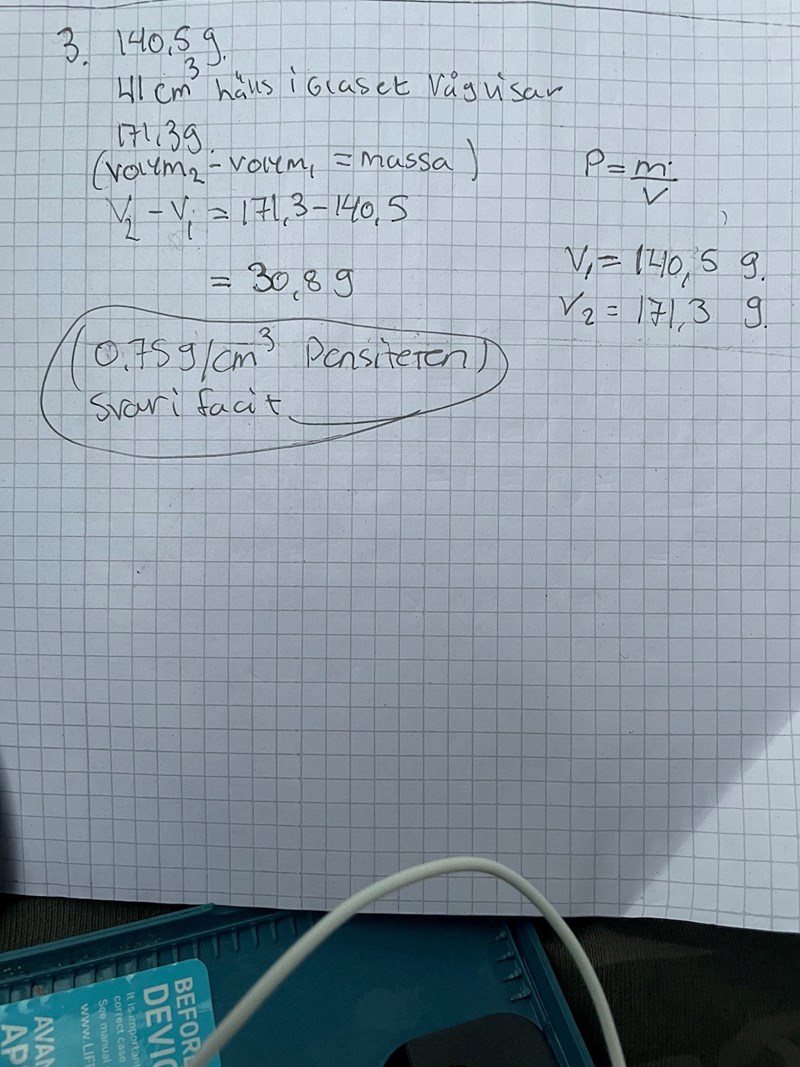 3. 140,5 g.
41 cm³ hälls i Glaset Våg visar
171,3g.
(volym₂ - volym₁ = massa)
P = m/V
V₂ - V₁ = 171,3 - 140,5
= 30,8 g
V₁ = 140,5 g.
V₂ = 171,3 g.
(0.75 g/cm³ Densiteten)
Svar i facit
BEFOR
DEVIC
It is important
correct case
See manual
www.LIF
AVAN
AP